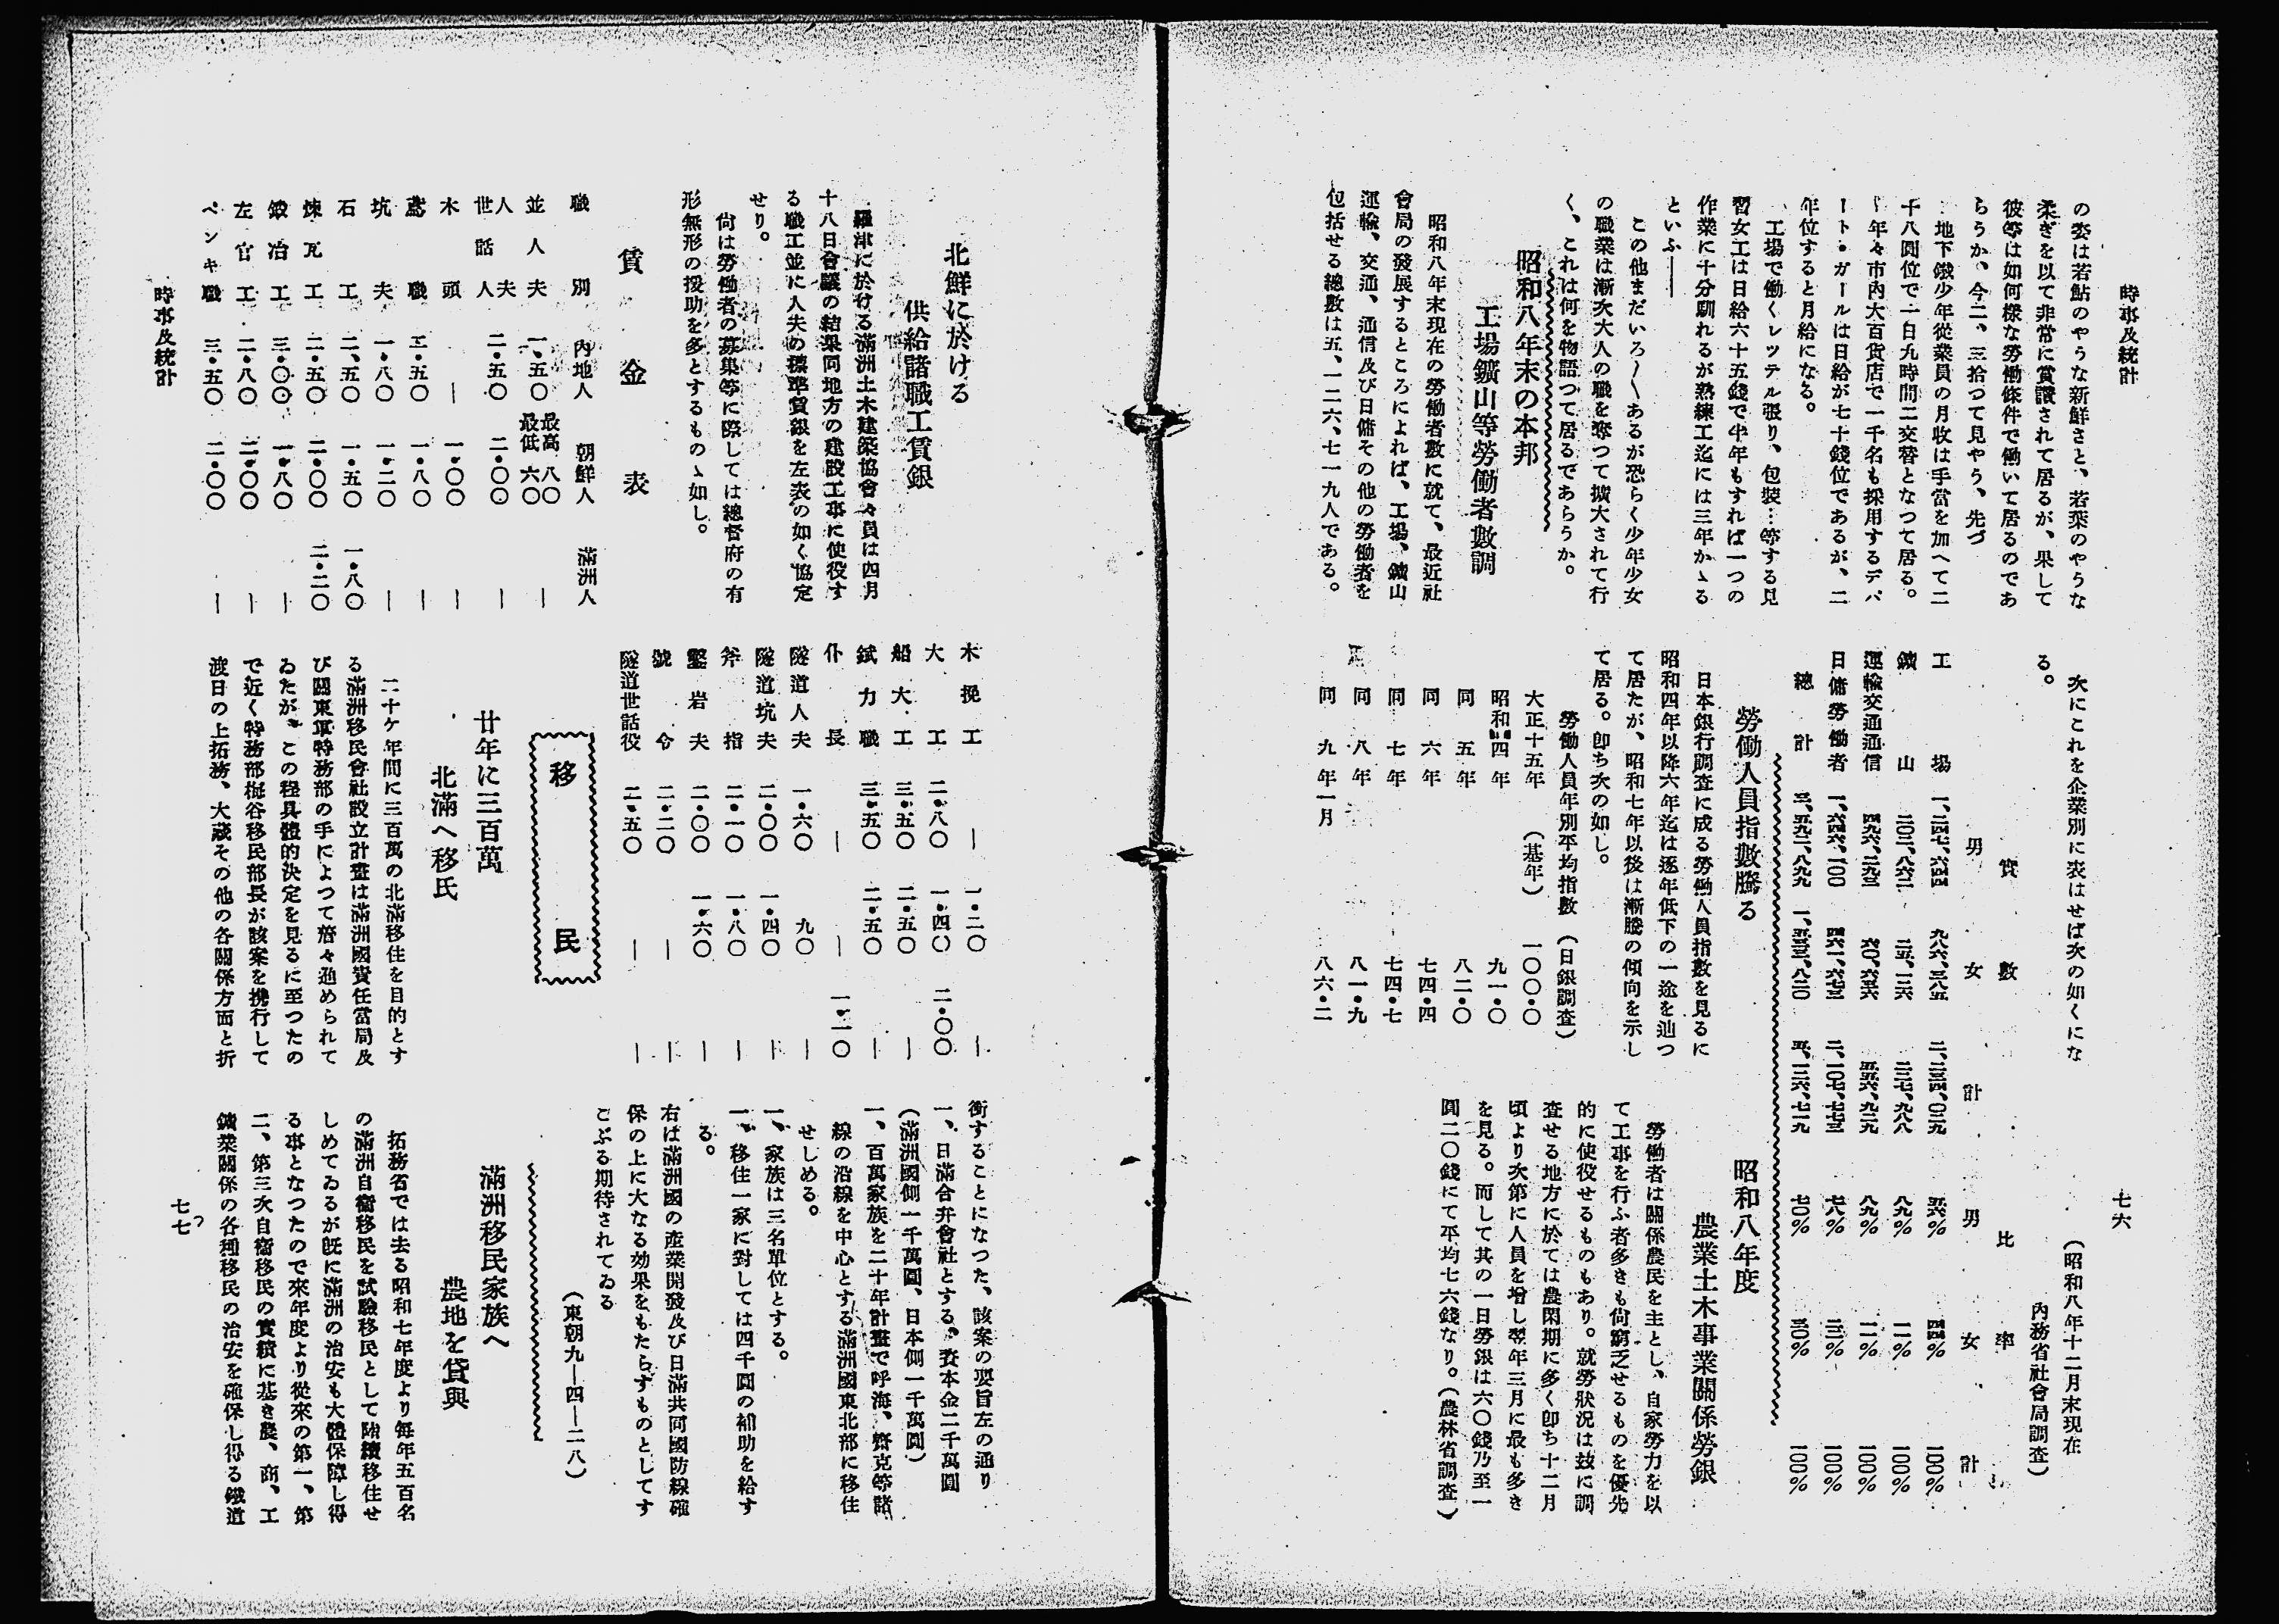 時事及統計
七六
の姿は若鮎のやうな新鮮さと、若葉のやうな
柔ぎを以て非常に賞讃されて居るが、果して
彼等は如何樣な勞働條件で働いて居るのであ
らうか、今二、三拾つて見やう、先づ
地下鐵少年從業員の月收は手當を加へて二
十八圓位で一日九時間二交替となつて居る。
年々市內大百貨店で一千名も採用するデパ
ート・ガールは日給が七十錢位であるが、二
年位すると月給になる。
工場で働くレッテル張り、包裝…等する見
習女工は日給六十五錢で半年もすれば一つの
作業に十分馴れるが熟練工迄には三年かゝる
といふ――
この他まだいろ〳〵あるが恐らく少年少女
の職業は漸次大人の職を奪つて擴大されて行
く、これは何を物語つて居るであらうか。
昭和八年末の本邦
工場鑛山等勞働者數調
昭和八年末現在の勞働者數に就て、最近社
會局の發展するところによれば、工場、鑛山
運輸、交通、通信及び日傭その他の勞働者を
包括せる總數は五、一二六、七一九人である。
次にこれを企業別に表はせば次の如くにな
る。
(昭和八年十二月末現在
內務省社會局調査)
實數 比率
男 女 計 男 女 計
工場 一、二四七、六四四 九八六、三八五 二、二三四、〇二九 五六% 四四% 一〇〇%
鑛山 二〇二、八六二 二五、一二六 二二七、九八八 八九% 一一% 一〇〇%
運輸交通通信 四九六、二九三 六〇、六三六 五五六、九二九 八九% 一一% 一〇〇%
日傭勞働者 一、六四六、一〇〇 四六一、六七三 二、一〇七、七七三 七八% 二二% 一〇〇%
總計 三、五九二、八九九 一、五三三、八二〇 五、一二六、七一九 七〇% 三〇% 一〇〇%
勞働人員指數騰る
日本銀行調査に成る勞働人員指數を見るに
昭和四年以降六年迄は逐年低下の一途を辿つ
て居たが、昭和七年以後は漸騰の傾向を示し
て居る。卽ち次の如し。
勞働人員年別平均指數(日銀調査)
大正十五年(基年) 一〇〇・〇
昭和四年 九一・〇
同五年 八二・〇
同六年 七四・四
同七年 七四・七
同八年 八一・九
同九年一月 八六・二
昭和八年度
農業土木事業關係勞銀
勞働者は關係農民を主とし、自家勞力を以
て工事を行ふ者多きも尙窮乏せるものを優先
的に使役せるものもあり。就勞狀況は玆に調
査せる地方に於ては農閑期に多く卽ち十二月
頃より次第に人員を增し翌年三月に最も多き
を見る。而して其の一日勞銀は六〇錢乃至一
圓二〇錢にて平均七六錢なり。(農林省調査)
北鮮に於ける
供給諸職工賃銀
羅津に於ける滿洲土木建築協會々員は四月
十八日會議の結果同地方の建設工事に使役す
る職工並に人夫の標準賃銀を左表の如く協定
せり。
尙は勞働者の募集等に際しては總督府の有
形無形の援助を多とするものゝ如し。
賃金表
職別 內地人 朝鮮人 滿洲人
並人夫 一・五〇 最高 八〇 最低 六〇 ―
人夫世話人 二・五〇 二・〇〇 ―
木頭 ― 一・〇〇 ―
鳶職 二・五〇 一・八〇 ―
坑夫 一・八〇 一・二〇 ―
石工 二、五〇 一・五〇 一・八〇
煉瓦工 二・五〇 二・〇〇 二・二〇
鍛冶工 三・〇〇 一・八〇 ―
左官工 二・八〇 二・〇〇 ―
ペンキ職 三・五〇 二・〇〇 ―
木挽工 ― 一・二〇 ―
大工 二・八〇 一・四〇 二・〇〇
船大工 三・五〇 二・五〇 ―
鉽力職 三・五〇 二・五〇 ―
什長 ― ― 一・一〇
隧道人夫 一・六〇 九〇 ―
隧道坑夫 二・〇〇 一・四〇 ―
斧指 二・一〇 一・八〇 ―
鑿岩夫 二・〇〇 一・六〇 ―
號令 二・二〇 ― ―
隧道世話役 二・五〇 ― ―
移民
廿年に三百萬
北滿へ移民
二十ケ年間に三百萬の北滿移住を目的とす
る滿洲移民會社設立計畫は滿洲國責任當局及
び關東軍特務部の手によつて着々進められて
ゐたが、この程具體的決定を見るに至つたの
で近く特務部梶谷移民部長が該案を携行して
渡日の上拓務、大藏その他の各關係方面と折
衝することになつた、該案の要旨左の通り
一、日滿合弁會社とする、資本金二千萬圓
(滿洲國側一千萬圓、日本側一千萬圓)
一、百萬家族を二十年計畫で呼海、齊克等諸
線の沿線を中心とする滿洲國東北部に移住
せしめる。
一、家族は三名單位とする。
一、移住一家に對しては四千圓の補助を給す
る。
右は滿洲國の產業開發及び日滿共同國防線確
保の上に大なる効果をもたらすものとしてす
こぶる期待されてゐる
(東朝九―四―二八)
滿洲移民家族へ
農地を貸與
拓務省では去る昭和七年度より每年五百名
の滿洲自衞移民を試驗移民として陸續移住せ
しめてゐるが旣に滿洲の治安も大體保障し得
る事となつたので來年度より從來の第一、第
二、第三次自衞移民の實績に基き農、商、工
鑛業關係の各種移民の治安を確保し得る鐵道
時事及統計
七七